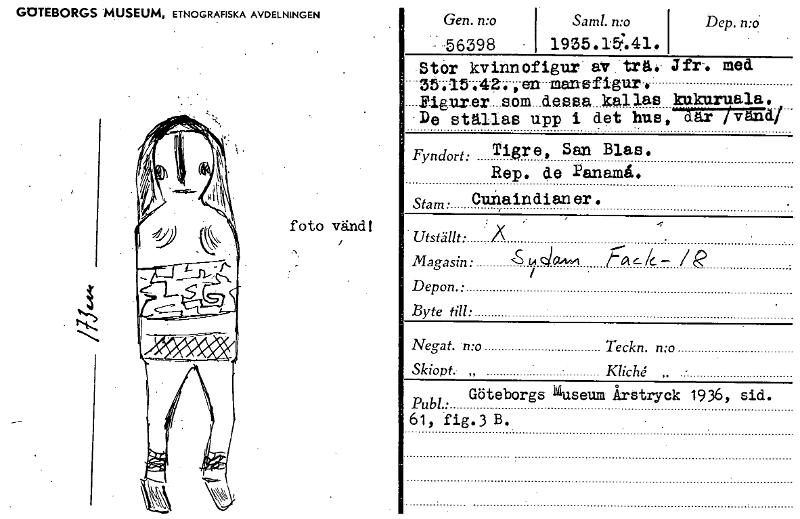 GÖTEBORGS MUSEUM, ETNOGRAFISKA AVDELNINGEN
173 cm
foto vänd!
Gen. n:o
56398
Saml. n:o
1935.15.41.
Dep. n:o
Stor kvinnofigur av trä. Jfr. med
35.15.42.,en mansfigur.
Figurer som dessa kallas kukuruala.
De ställas upp i det hus, där /vänd/
Fyndort: Tigre, San Blas.
Rep. de Panamá.
Stam: Cunaindianer.
Utställt: X
Magasin: Sydam Fack-18
Depon.:
Byte till:
Negat. n:o Teckn. n:o
Skiopt. „ Kliché „
Publ.: Göteborgs Museum Årstryck 1936, sid.
61, fig.3 B.